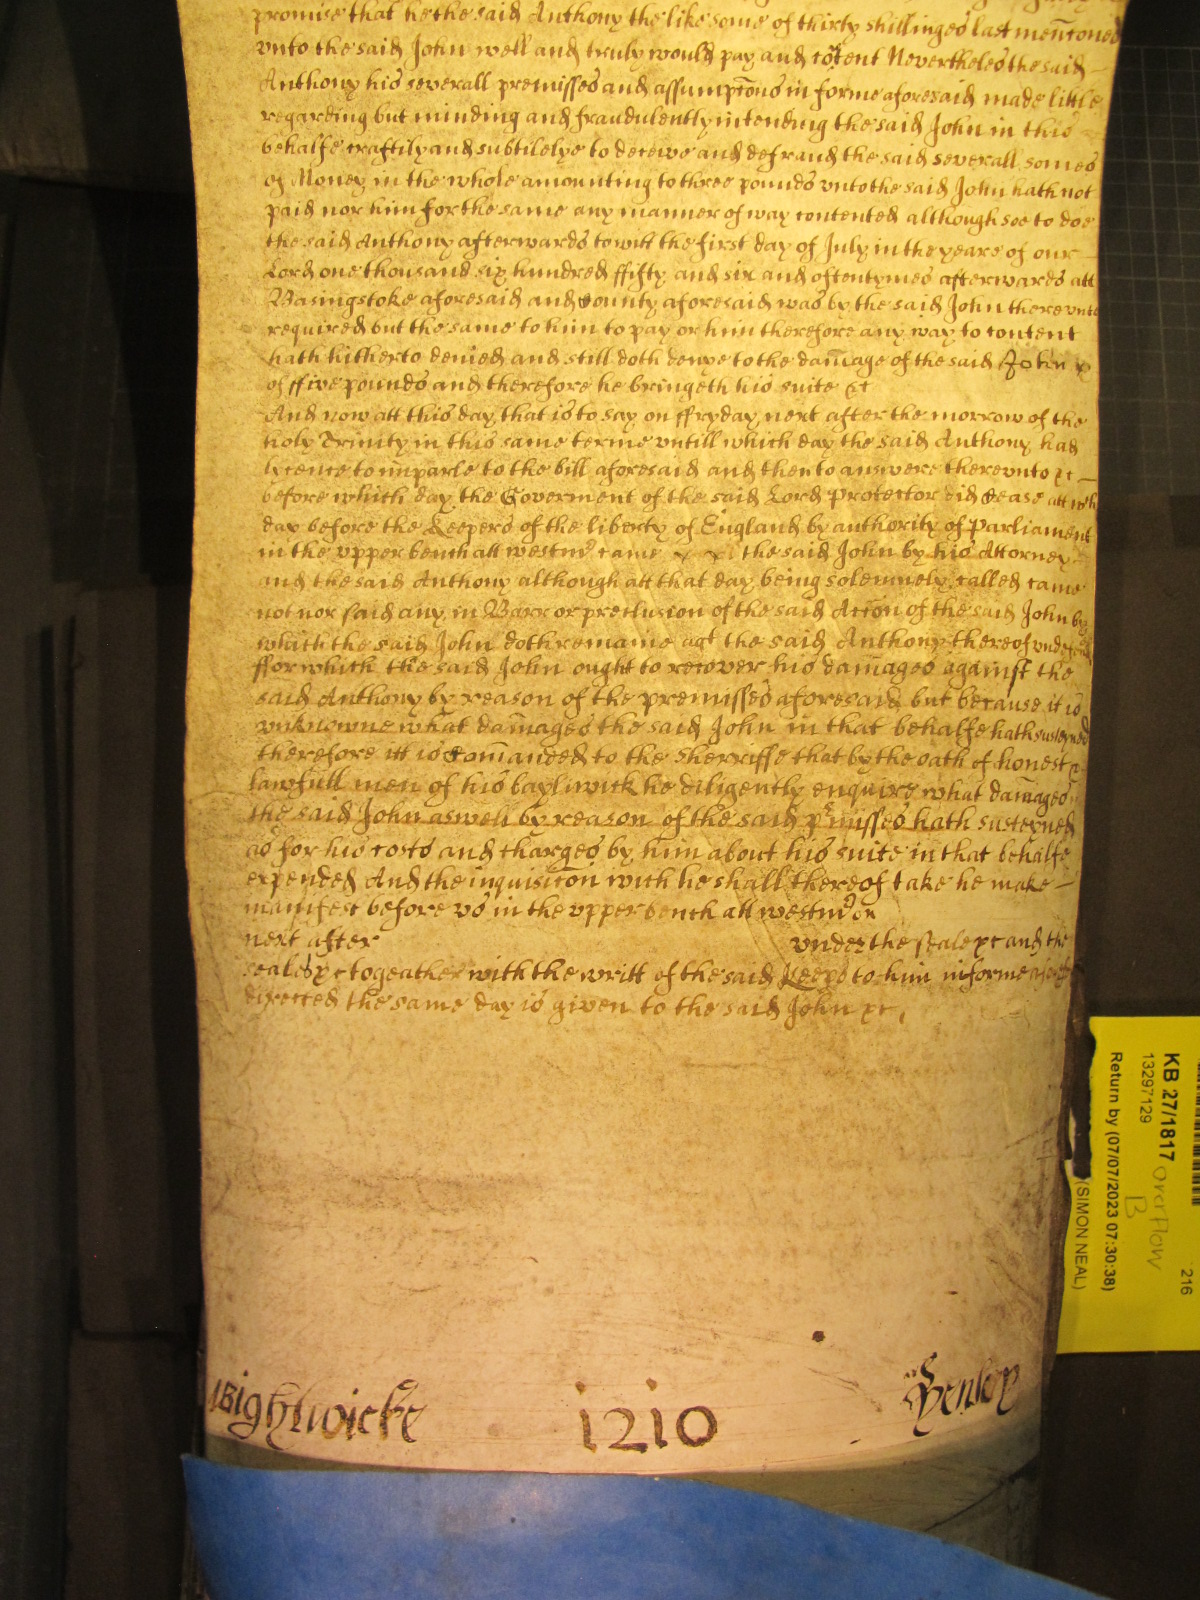 promise that he the said Anthony the like some of thirty shillinges last mencõned
vnto the said John well and truly would pay and cõtent Neverthelesthe said
Anthony his severall premisses and assumpcõns in forme aforesaid made little
regarding but minding and fraudulently intending the said John in this
behalfe craftily and subtilelye to deceive and defraud the said severall somes
of Money in the whole amounting to three pounds vnto the said John hath not
paid nor him for the same any manner of way contented although soe to doe
the said Anthony afterwards towitt the first day of July in the yeare of our
Lord one thousand six hundred ffifty and six and oftentymes afterwards att
Basingstoke aforesaid and County aforesaid was by the said John therevnto
required but the same to him to pay or him therefore any way to content
hath hitherto denied and still doth denye to the dam̃age of the said John
of ffive pounds and therefore he bringeth his suite &c
And now att this day that is to say on ffryday next after the morrow of the
holy Trinity in this same terme vntill which day the said Anthony had
lycence to imparle to the bill aforesaid and then to answere therevnto &c
before which day the Goverment of the said Lord Protector did Cease att wch
day before the Keepers of the liberty of England by authority of Parliament
in the vpper bench att westmr came x x the said John by his Attorney
and the said Anthony although att that day being solemnely called came
not nor said any in Barr or preclusion of the said Accõn of the said John by
which the said John doth remaine agt the said Anthony thereof vndefended
ffor which the said John ought to recover his dam̃ages against the
said Anthony by reason of the premisses aforesaid but because it is
vnknowne what dam̃ages the said John in that behalfe hath susteyned
therefore itt is Com̃anded to the Sherriffe that by the oath of honest &
lawfull men of his bayliwick he diligently enquire what dam̃ages
the said John aswell by reason of the said premisses hath susteyned
as for his costs and charges by him about his suite in that behalfe
expended And the inquisicõn wch he shall thereof take he make
manifest before vs in the vpper bench att westmr on
next after under the seale &c and the
seales &c togeather with the writt of the said Keeps to him in forme aforesd
directed the same day is given to the said John &c,
Bightwicke 1210 Henley
KB 27/1817 overflow
B
13297129
216
Return by (07/07/2023 07:30:38)
(SIMON NEAL)